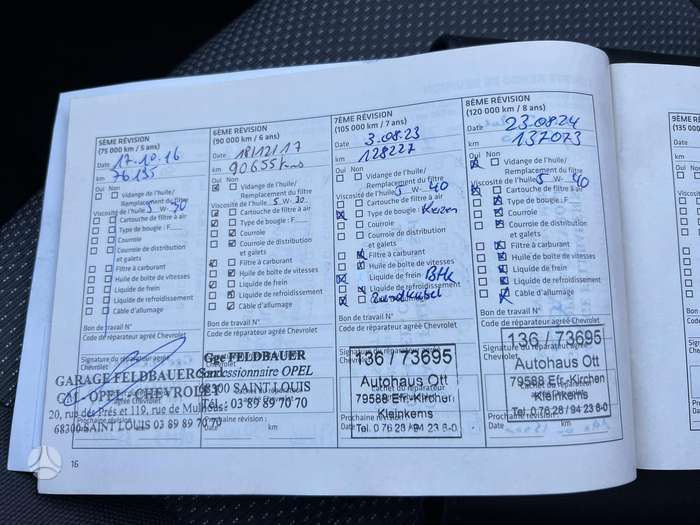 5ÈME RÉVISION
(75 000 km / 5 ans)
Date 17.10.16
km 76135
Oui Non
Vidange de l'huile/
Remplacement du filtre
Viscosité de l'huile 5 W- 30
Cartouche de filtre à air
Type de bougie : F
Courroie
Courroie de distribution
et galets
Filtre à carburant
Huile de boîte de vitesses
Liquide de frein
Liquide de refroidissement
Câble d'allumage
Bon de travail N°
Code de réparateur agréé Chevrolet
Signature du réparateur
agréé Chevrolet
GARAGE FELDBAUER
OPEL - CHEVROLET
20, rue des Prés et 119, rue de Mulhouse
68300 SAINT LOUIS 03 89 89 70 70
6ÈME RÉVISION
(90 000 km / 6 ans)
Date 18/12/17
km 90655 km
Oui Non
Vidange de l'huile/
Remplacement du filtre
Viscosité de l'huile 5 W- 30
Cartouche de filtre à air
Type de bougie : F
Courroie
Courroie de distribution
et galets
Filtre à carburant
Huile de boîte de vitesses
Liquide de frein
Liquide de refroidissement
Câble d'allumage
Bon de travail N°
Code de réparateur agréé Chevrolet
Gge FELDBAUER
Concessionnaire OPEL
68300 SAINT LOUIS
Tél. : 03 89 89 70 70
Prochaine révision :
Date km
7ÈME RÉVISION
(105 000 km / 7 ans)
Date 3.08.23
km 128227
Oui Non
Vidange de l'huile/
Remplacement du filtre
Viscosité de l'huile 5 W- 40
Cartouche de filtre à air
Type de bougie : Kerzen
Courroie
Courroie de distribution
et galets
Filtre à carburant
Huile de boîte de vitesses
Liquide de frein
Liquide de refroidissement
Zündkabel
Bon de travail N°
Code de réparateur agréé Chevrolet
136 / 73695
Autohaus Ott
79588 Efr.-Kirchen
Kleinkems
Tel. 0 76 28 / 94 23 6-0
Prochaine révision
Date
8ÈME RÉVISION
(120 000 km / 8 ans)
Date 23.08.24
km 137073
Oui Non
Vidange de l'huile/
Remplacement du filtre
Viscosité de l'huile 5 W- 40
Cartouche de filtre à air
Type de bougie : F
Courroie
Courroie de distribution
et galets
Filtre à carburant
Huile de boîte de vitesses
Liquide de frein
Liquide de refroidissement
Câble d'allumage
Bon de travail N°
Code de réparateur agréé Chevrolet
136 / 73695
Autohaus Ott
79588 Efr.-Kirchen
Kleinkems
Tel. 0 76 28 / 94 23 6-0
Prochaine révision
Date km
9ÈME RÉ
(135 000
Date
km
Oui Non
16